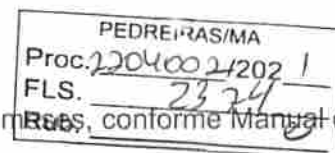 PEDREIRAS/MA
Proc. 2204002/2021
FLS. 2324
Rub.
, conforme Manual